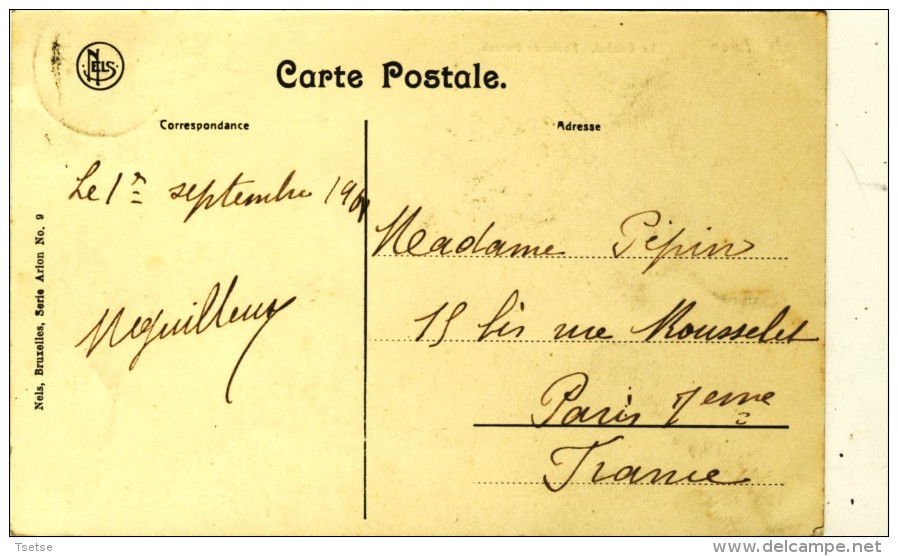 NELS
Carte Postale.
Correspondance
Adresse
Le 1er septembre
Madame Pépin
15 bis rue Rousselet
Paris 7eme
France
Nels, Bruxelles, Serie Arlon No. 9
Tsetse
http://www.delcampe.net